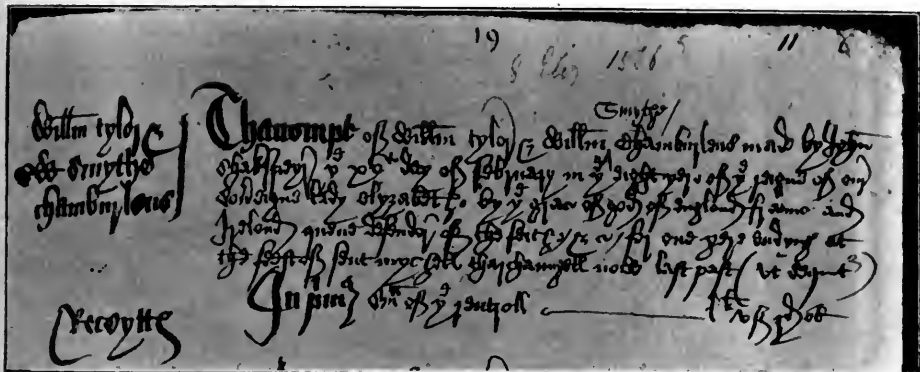 19
8 Eliz 1566
11
Willm tylor &
Smythe
chamburlens
Smythe
Thaccompt of Willm tylor & Willm chamburlens made by John
Shakspeyr y^e xv^th day of february in y^e eight yere of y^e reigne of our
sovereigne lady elyzabeth by y^e grace of god of england fraunce and
Ireland quene defendor of the feith &c for one yere endyng at
the feest of sent mychell tharchaungell nowe last past
In pm^s of y^e rentroll
Receytts